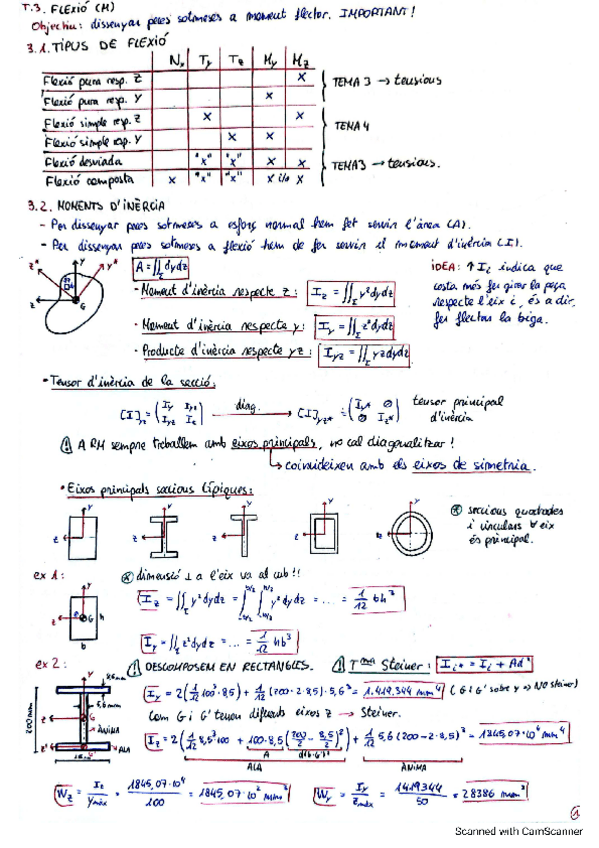 T.3. FLEXIÓ (M)
Objectiu: dissenyar peces sotmeses a moment flector. IMPORTANT!
3.1. TIPUS DE FLEXIÓ
Nx Ty Tz My Mz
Flexió pura resp. Z x
Flexió pura resp. Y x
TEMA 3 → tensions
Flexió simple resp. Z x x
Flexió simple resp. Y x x
TEMA 4
Flexió desviada "x" "x" x x
Flexió composta x "x" "x" x i/o x
TEMA3 → tensions.
3.2. MOMENTS D'INÈRCIA
- Per dissenyar peces sotmeses a esforç normal hem fet servir l'àrea (A).
- Per dissenyar peces sotmeses a flexió hem de fer servir el moment d'inèrcia (I).
A = ∬ dydz
· Moment d'inèrcia respecte z: Iz = ∬ y² dydz
· Moment d'inèrcia respecte y: Iy = ∬ z² dydz
· Producte d'inèrcia respecte yz: Iyz = ∬ yz dydz
IDEA: ↑ Ii indica que
costa més fer girar la peça
respecte l'eix i, és a dir,
fer flectar la biga.
· Tensor d'inèrcia de la secció:
[I]yz = (Iy Iyz / Iyz Iz) diag. → [I]yz* = (Iy* 0 / 0 Iz*) tensor principal
d'inèrcia
A RM sempre treballem amb eixos principals, no cal diagonalitzar!
→ coincideixen amb els eixos de simetria.
· Eixos principals seccions típiques:
* seccions quadrades
i circulars ∀ eix
és principal.
ex 1: * dimensió ⊥ a l'eix va al cub!!
Iz = ∬ y² dydz = ∫∫ y² dydz = ... = 1/12 bh³
Iy = ∬ z² dydz = ... = 1/12 hb³
ex 2: ! DESCOMPOSEM EN RECTANGLES. ! Tma Steiner: Ii* = Ii + Ad²
Iy = 2(1/12 100³·8,5) + 1/12 (200-2·8,5)·5,6³ = 1.419.344 mm⁴ (G i G' sobre y => NO Steiner)
Com G i G' tenen diferents eixos z → Steiner.
Iz = 2(1/12 8,5³·100 + 100·8,5 (200/2 - 8,5/2)²) + 1/12 5,6 (200-2·8,5)³ = 1845,07·10⁴ mm⁴
A d(G-G')²
ALA ÀNIMA
200mm 8,5mm 5,6mm ÀNIMA ALA
Wz = Iz/ymàx = 1845,07·10⁴/100 = 1845,07·10² mm³ Wy = Iy/zmàx = 1419344/50 = 28386 mm³
1
Scanned with CamScanner